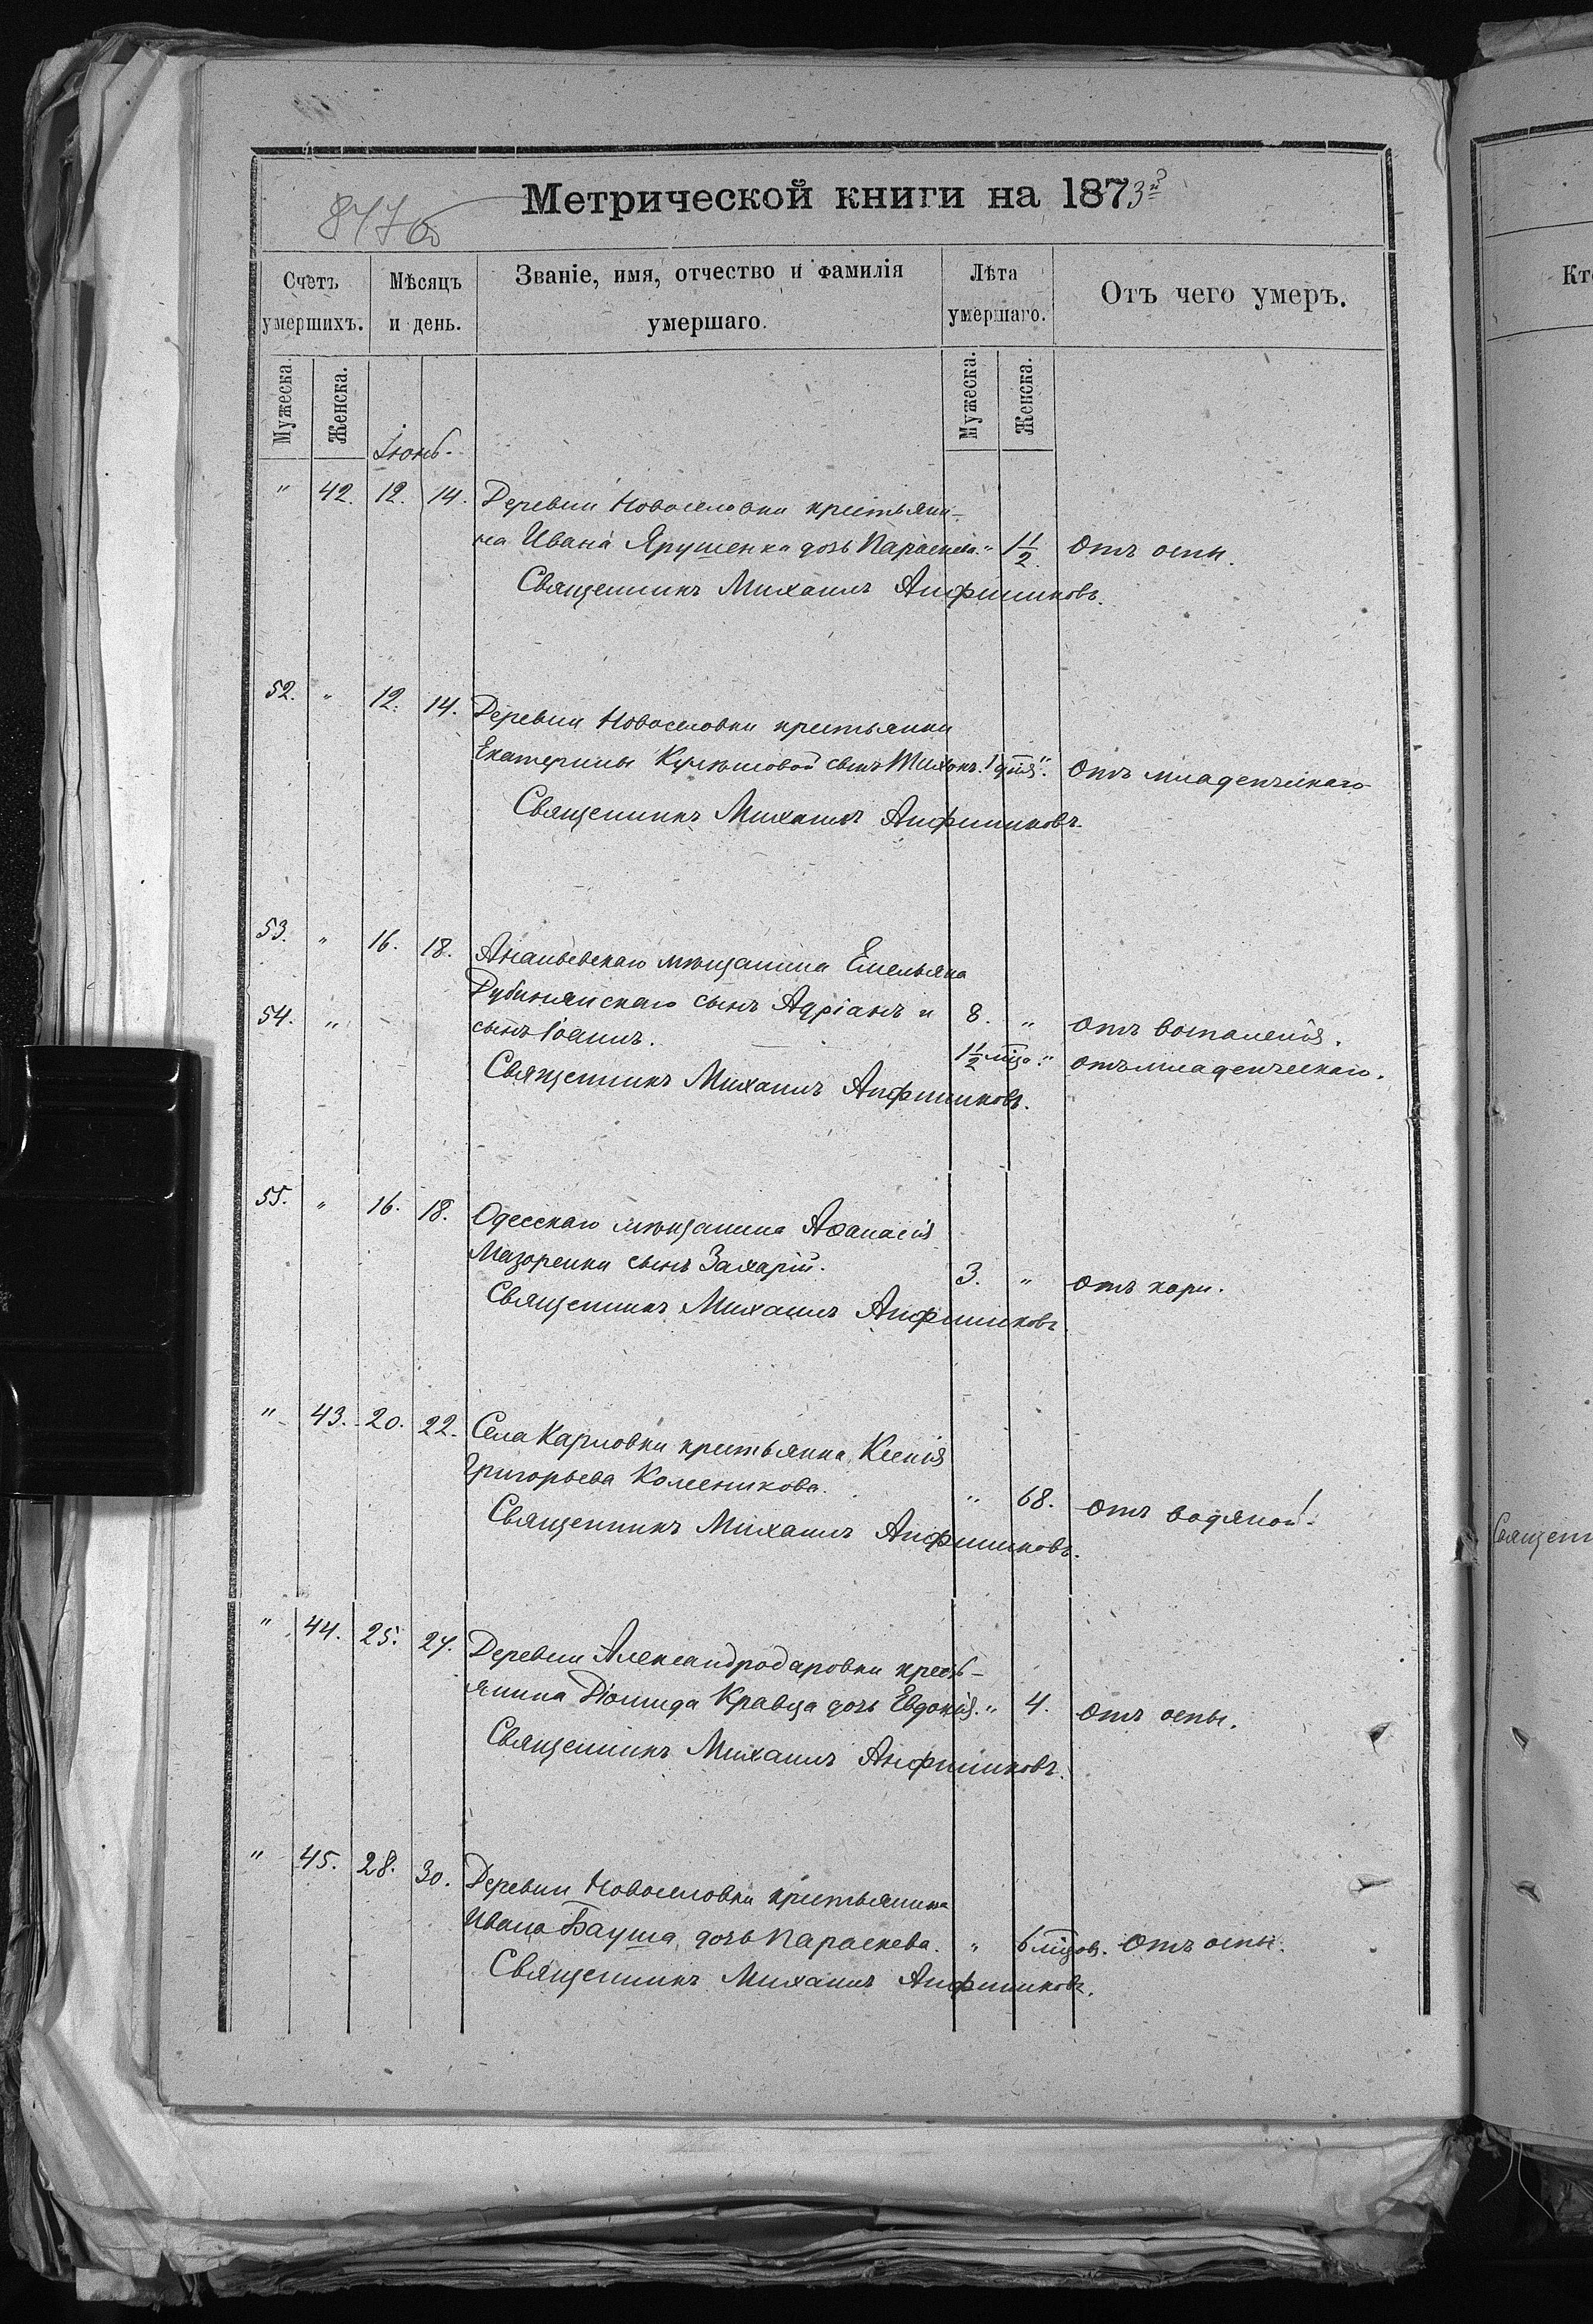 Метрической книги на 1873й
877об
Счетъ умершихъ. Мѣсяцъ и день. Званіе, имя, отчество и фамилія умершаго. Лѣта умершаго. Отъ чего умеръ.
Мужеска. Женска. Мужеска. Женска.
Іюнь.
" 42. 12. 14. Деревни Новоселовки крестьяни-
на Ивана Ярушенка дочь Параскева. " 1 1/2. Отъ оспы.
Священникъ Михаилъ Анфиниковъ.
52. " 12. 14. Деревни Новоселовки крестьянки
Екатерины сынъ Тихонъ. 1 дня. " Отъ младенческаго
Священникъ Михаилъ Анфиниковъ.
53. " 16. 18. Ананьевскаго мѣщанина Емельяна
Рубинянскаго сынъ Адріанъ и 8. " Отъ воспаленія.
54. " сынъ Іоаннъ. 1 1/2 мѣс. " отъ младенческаго.
Священникъ Михаилъ Анфиниковъ.
55. " 16. 18. Одесскаго мѣщанина Аѳанасія
Мазоренки сынъ Захарій. 3. " Отъ кори.
Священникъ Михаилъ Анфиниковъ.
" 43. 20. 22. Села Карловки крестьянка Ксенія
Григорьева Колесникова. " 68. Отъ водяной.
Священникъ Михаилъ Анфиниковъ.
" 44. 25. 27. Деревни Александродаровки кресть-
янина Діомида Кравца дочь Евдокія. " 4. Отъ оспы.
Священникъ Михаилъ Анфиниковъ.
" 45. 28. 30. Деревни Новоселовки крестьянина
Ивана Бауша дочь Параскева. " 6 мѣсяцов. Отъ оспы.
Священникъ Михаилъ Анфиниковъ.
Кт
Священ